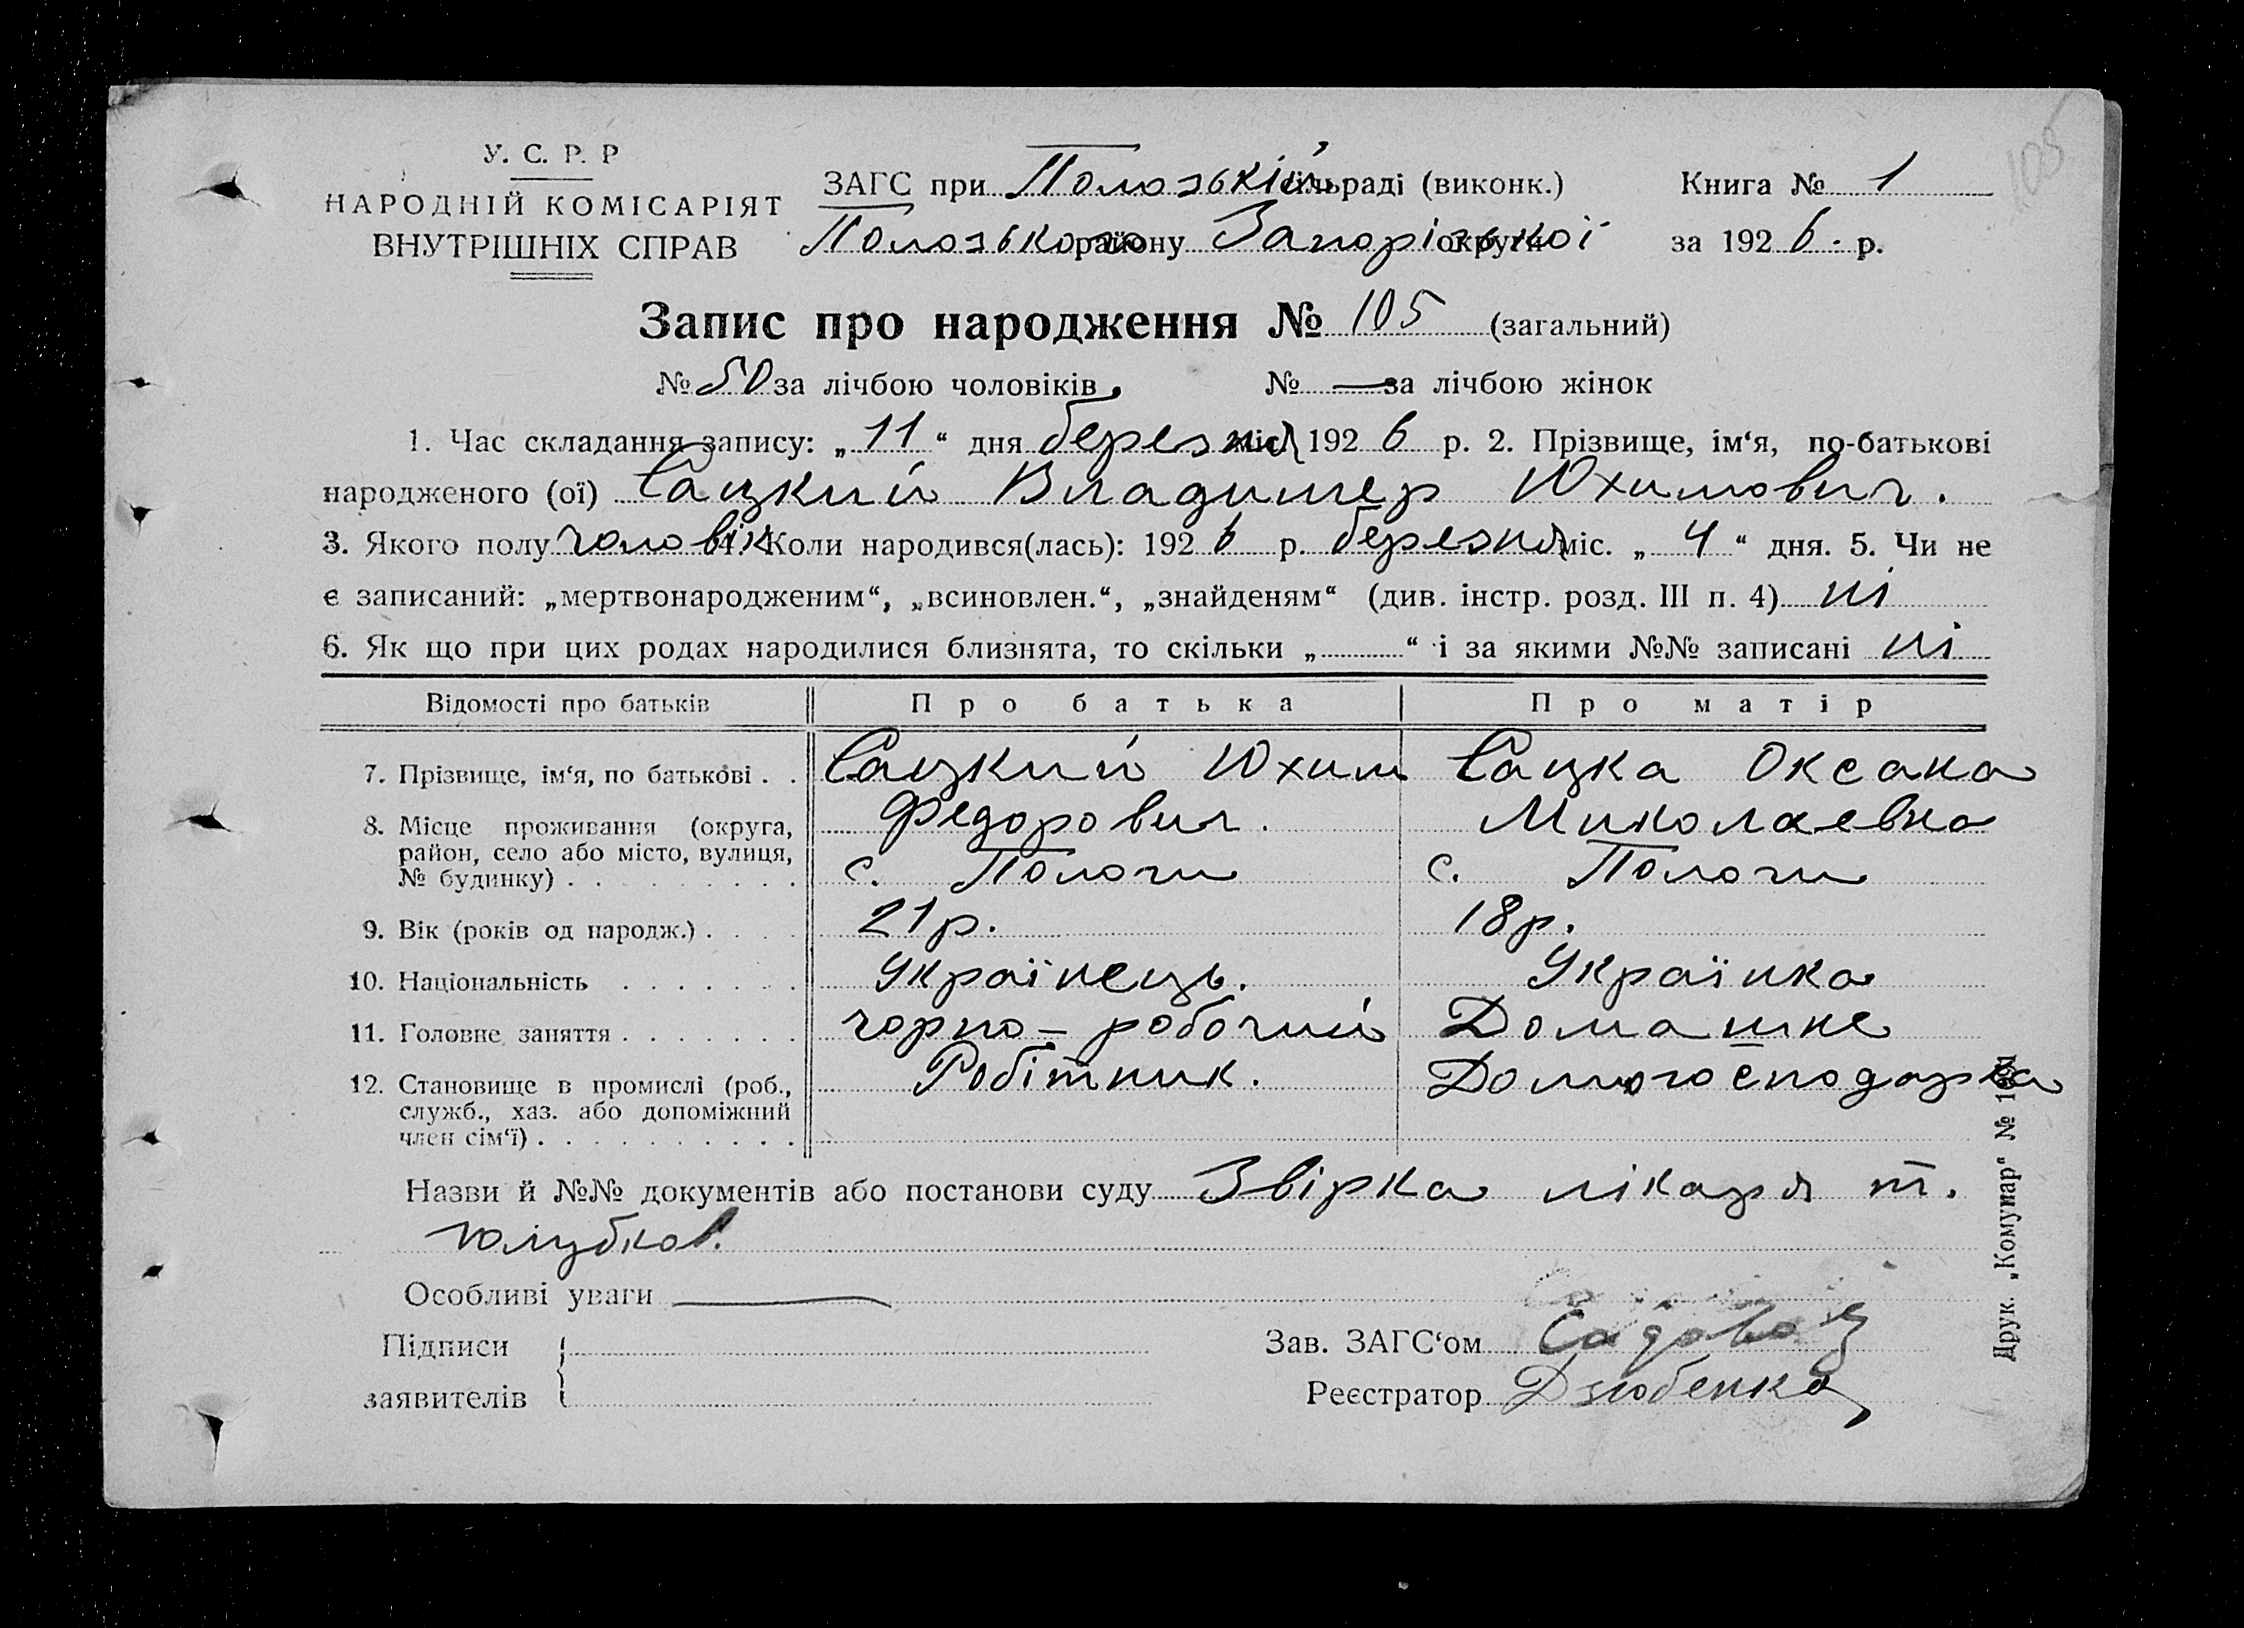 105
У. С. Р. Р
НАРОДНІЙ КОМІСАРІЯТ
ВНУТРІШНІХ СПРАВ
ЗАГС при Положській сільраді (виконк.) Книга № 1
Положського району Запорізької округи за 1926 р.
Запис про народження № 105 (загальний)
№ 50 за лічбою чоловіків, № — за лічбою жінок
1. Час складання запису: „11“ дня березня міс. 1926 р. 2. Прізвище, ім‘я, по-батькові
народженого (ої) Сацкий Владимер Юхимович.
3. Якого полу чоловік 4. Коли народився(лась): 1926 р. березня міс. „4“ дня. 5. Чи не
є записаний: „мертвонародженим“, „всиновлен.“, „знайденям“ (див. інстр. розд. III п. 4) ні
6. Як що при цих родах народилися близнята, то скільки „ “ і за якими №№ записані ні
Відомості про батьків Про батька Про матір
7. Прізвище, ім‘я, по батькові . . Сацкий Юхим Сацка Оксана
Федорович. Миколаевна
8. Місце проживання (округа,
район, село або місто, вулиця,
№ будинку) . . . . . . . . . с. Пологи с. Пологи
9. Вік (років од народж.) . . . . 21 р. 18 р.
10. Національність . . . . . . . Українець. Українка
11. Головне заняття . . . . . . . чорно-робочий Домашне
12. Становище в промислі (роб., Робітник. Домогосподарка
служб., хаз. або допоміжний
член сім‘ї) . . . . . . . . . .
Назви й №№ документів або постанови суду Звірка лікаря т.
Голубков.
Особливі уваги —
Підписи
заявителів
Зав. ЗАГС‘ом
Реєстратор Дзюбенко
Друк. „Комунар“ №